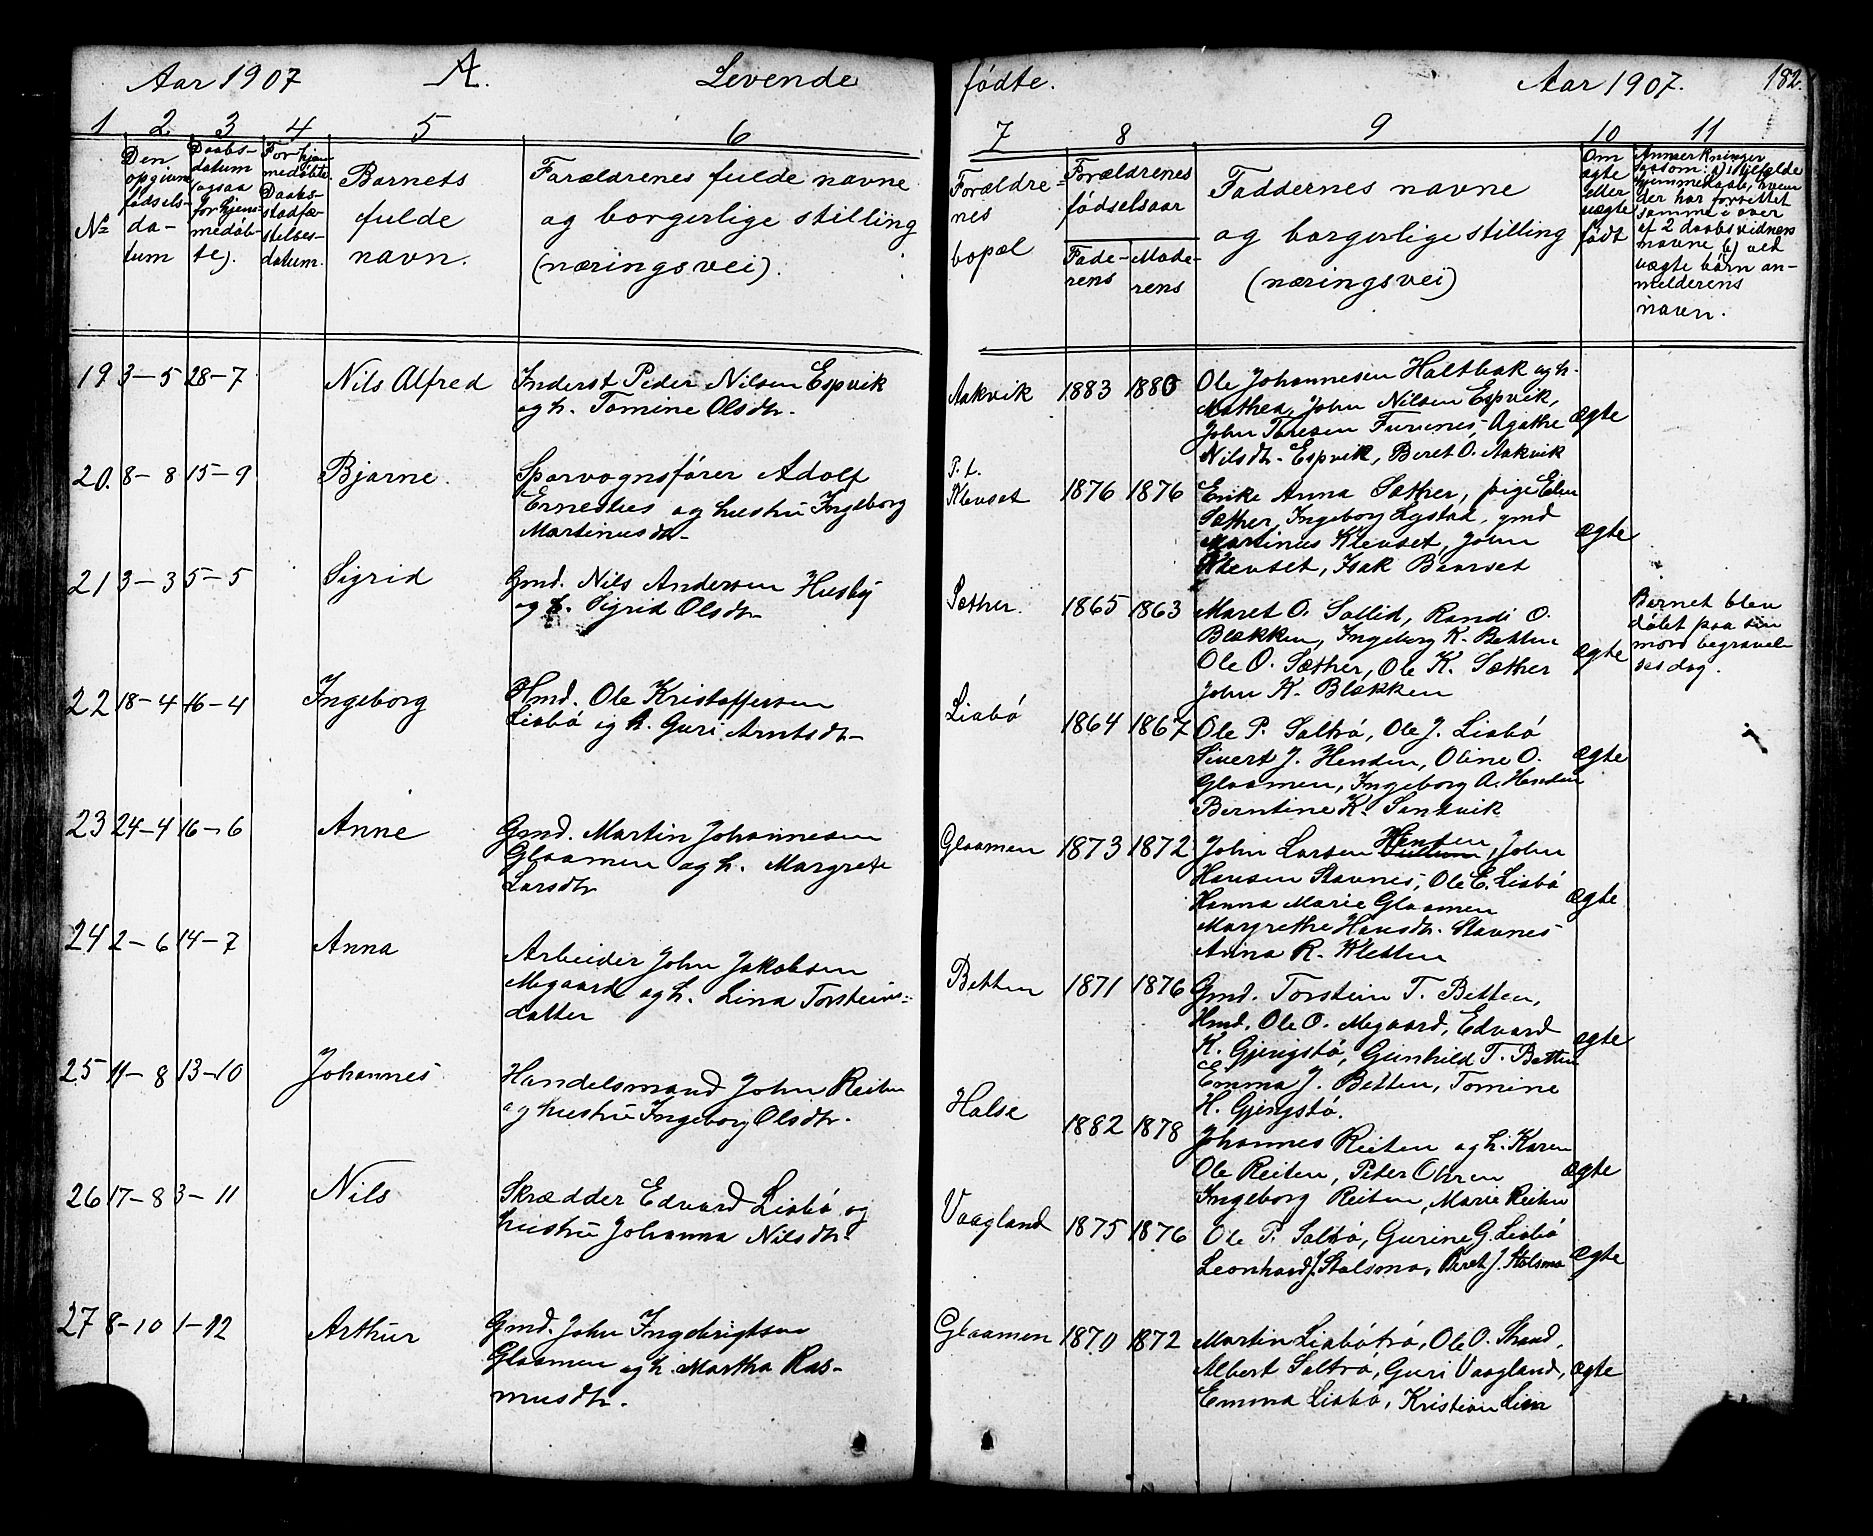 Aar 1907 A. Levende fødte. Aar 1907. 182.
1 2 3 4 5 6 7 8 9 10 11
№
Den
opgivne
fødsels-
da-
tum
Daabs-
datum
(ogsaa
for hjem-
medøb-
te).
For hjem
medøbte
Daabs-
stadfæ-
stelses-
datum.
Barnets
fulde
navn.
Forældrenes fulde navne
og borgerlige stilling
(næringsvei).
Forældre-
nes
bopæl
Forældrenes
fødselsaar
Fade-
rens
Mode-
rens
Faddernes navne
og borgerlige stilling
(næringsvei)
Om
ægte
eller
uægte
født
Anmerkninger
saasom: a) i tilfælde
hjemmedaab, hvem
der har forrettet
samme i over
af 2 daabsvidners
navne b) ved
uægte børn an-
melderens
navn.
19 3-5 28-7 Nils Alfred
Inderst Peder Nilsen Espvik
og h. Tomine Olsdtr.
Aakvik 1883 1880
Ole Johannesen Holtbak og h.
Mathea, John Nilsen Espvik,
John Toresen Furenes, Agathe
Nilsdtr. Espvik, Beret O. Aakvik
ægte
20. 8-8 15-9 Bjarne.
Sporvognsfører Adolf
Ernestus og hustru Ingeborg
Martinusdtr
P.t.
Klevset 1876 1876
Enke Anna Sæther, pige Elen
Sæther, Ingeborg Lystad, gmd
Martinus Klevset, John
Klevset, Isak Baarset
ægte
21 3-3 5-5 Sigrid
Gmd. Nils Andersen Husby
og h. Sigrid Olsdtr
Sæther. 1865 1863
Maret O. Sollid, Randi O.
Blekken, Ingeborg K. Betten
Ole O. Sæther, Ole K. Sæther
John K. Blekken
ægte
Barnet blev
døbt paa sin
mors begravel-
ses dag.
22 18-4 16-4 Ingeborg
Hmd. Ole Kristoffersen
Liabø og h. Guri Arntsdtr
Liabø 1864 1867
Ole P. Saltrø, Ole J. Liabø
Sivert J. Henden, Oline O.
Glaamen, Ingeborg A. Henden
Berntine K. Sandvik
ægte
23 24-4 16-6 Anne
Gmd. Martin Johannesen
Glaamen og h. Margrete
Larsdtr
Glaamen 1873 1872
John Larsen Henden, John
Hansen Stavnes, Ole E. Liabø
Hanna Marie Glaamen
Margrethe Hansdtr. Stavnes
Anna R. Kletten
ægte
24 2-6 14-7 Anna
Arbeider John Jakobsen
Megaard og h. Lina Torsteins-
datter
Betten 1871 1876
Gmd. Torstein T. Betten,
Hmd. Ole O. Megaard, Edvard
K. Gjengstø, Gunhild T. Betten
Emma J. Betten, Tomine
H. Gjengstø.
ægte
25 11-8 13-10 Johannes
Handelsmand John Reiten
og hustru Ingeborg Olsdtr.
Halse 1882 1878
Johannes Reiten og h. Karen
Ole Reiten, Peter Oren
Ingeborg Reiten, Marie Reiten
ægte
26 17-8 3-11 Nils
Skrædder Edvard Liabø og
hustru Johanna Nilsdtr.
Vaagland 1875 1876
Ole P. Saltrø, Gurine G. Liabø
Leonhard J. Stolsmo, Beret J. Stolsmo
ægte
27 8-10 1-12 Arthur
Gmd. John Ingebrigtsen
Glaamen og h. Martha Ras-
musdtr.
Glaamen 1870 1872
Martin Liabøtrø, Ole O. Strand,
Albert Saltrø, Guri Vaagland,
Emma Liabø, Kristian Lien
ægte